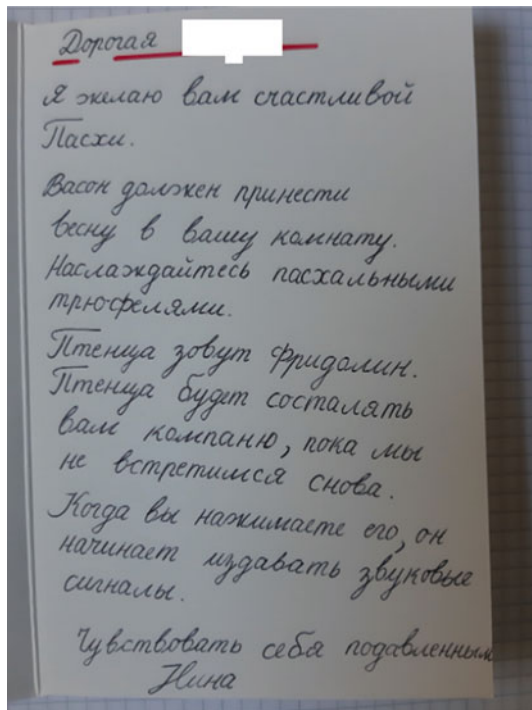 Дорогая
Я желаю вам счастливой
Пасхи.
Васон должен принести
весну в вашу комнату.
Наслаждайтесь пасхальными
трюфелями.
Птенца зовут Фридолин.
Птенца будет состалять
вам компаню, пока мы
не встретимся снова.
Когда вы нажимаете его, он
начинает издавать звуковые
сигналы.
Чувствовать себя подавленным
Нина